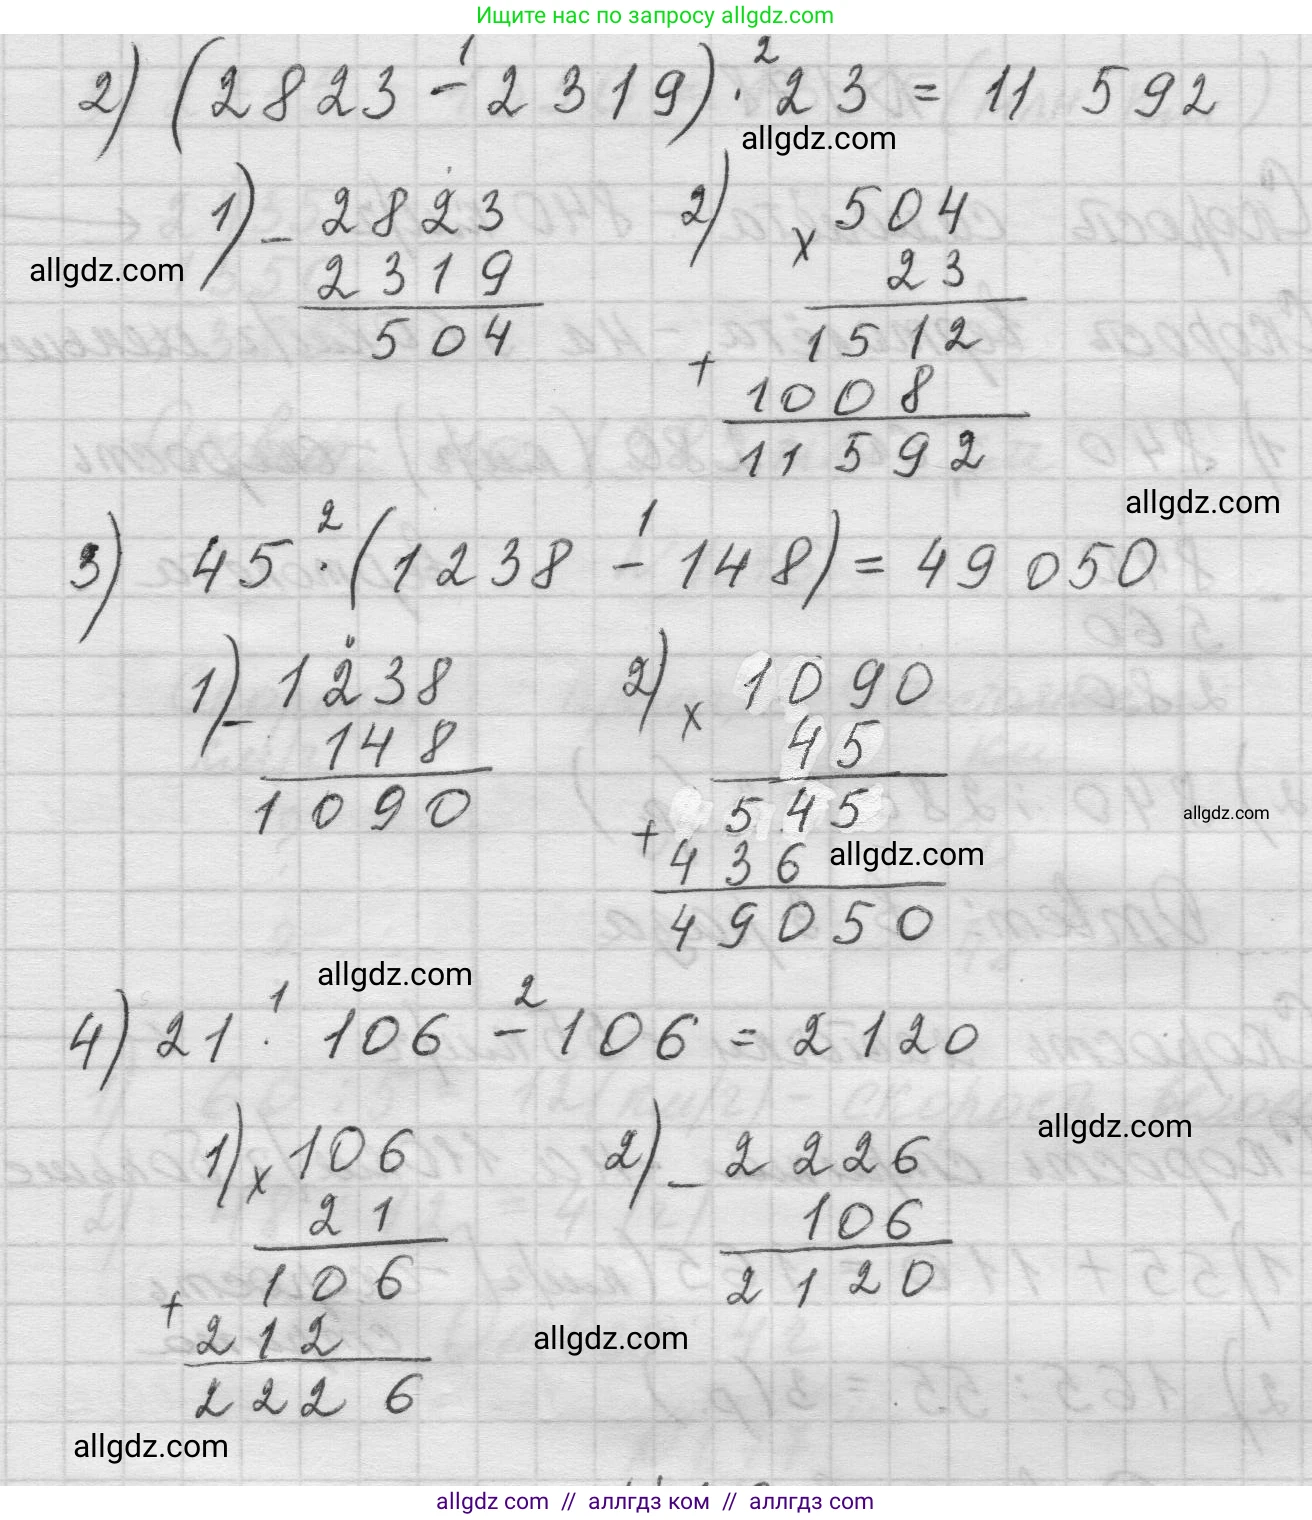 Ищите нас по запросу allgdz.com
2) (2823 - 2319) · 23 = 11 592
1 2
allgdz.com
1) - 2823 2) × 504
allgdz.com
2319 23
504 1512
+ 1008
11592
allgdz.com
2 1
3) 45 · (1238 - 148) = 49 050
1) - 1238 2) × 1090
148 45
1090 + 545
allgdz.com
436 allgdz.com
49050
allgdz.com
1 2
4) 21 · 106 - 106 = 2120
allgdz.com
1) × 106 2) - 2226
21 106
106 2120
+ 212 allgdz.com
2226
allgdz.com
allgdz com // аллгдз ком // аллгдз com